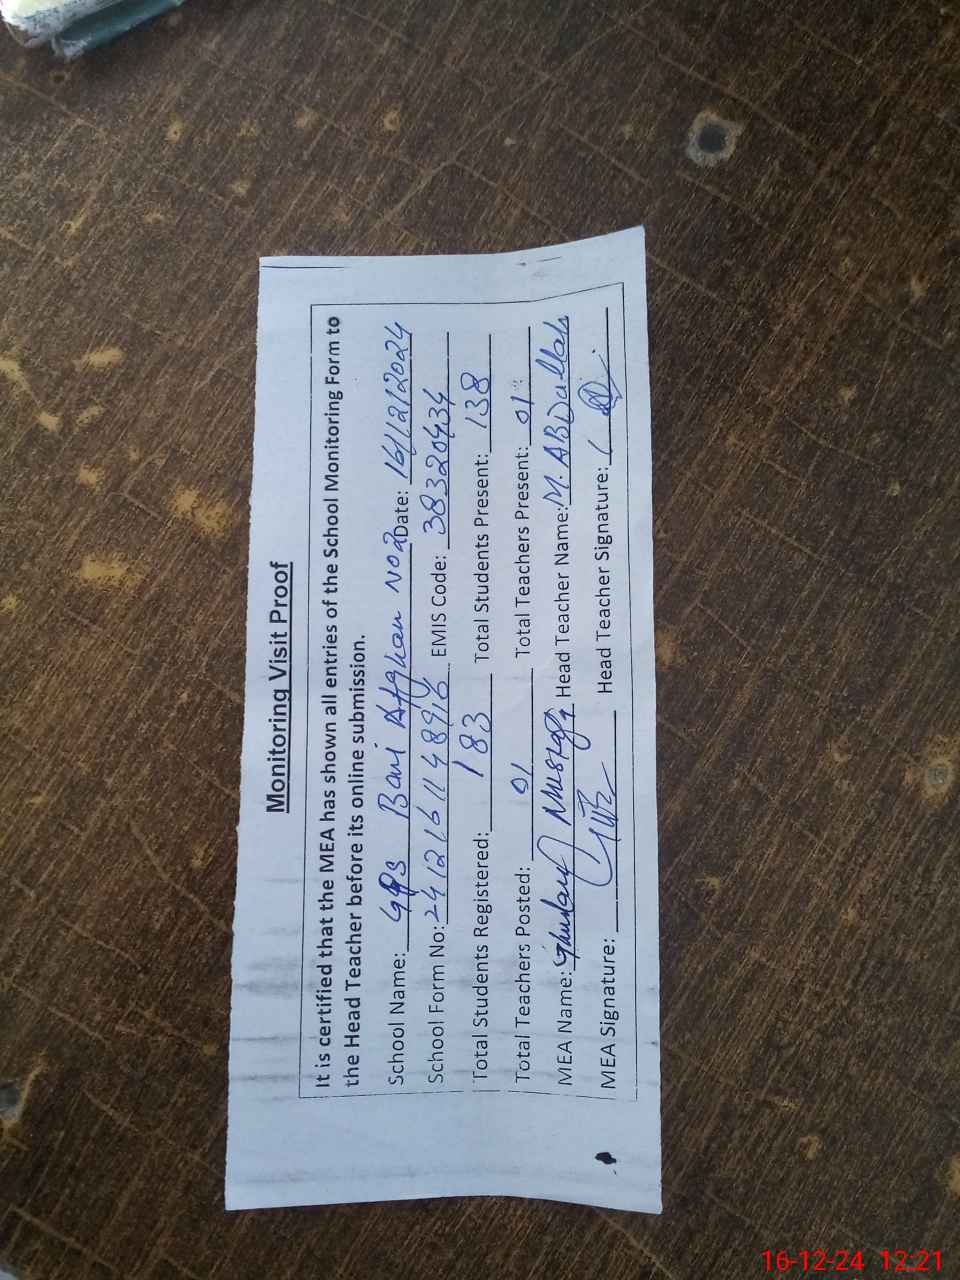 Monitoring Visit Proof
It is certified that the MEA has shown all entries of the School Monitoring Form to
the Head Teacher before its online submission.
School Name: GPS Bani Afghan No 2 Date: 16/12/2024
School Form No: 241216114896 EMIS Code: 38320434
Total Students Registered: 183 Total Students Present: 138
Total Teachers Posted: 01 Total Teachers Present: 01
MEA Name: Ghulam Mustafa Head Teacher Name: M. ABDullah
MEA Signature: Head Teacher Signature:
16-12-24 12:21